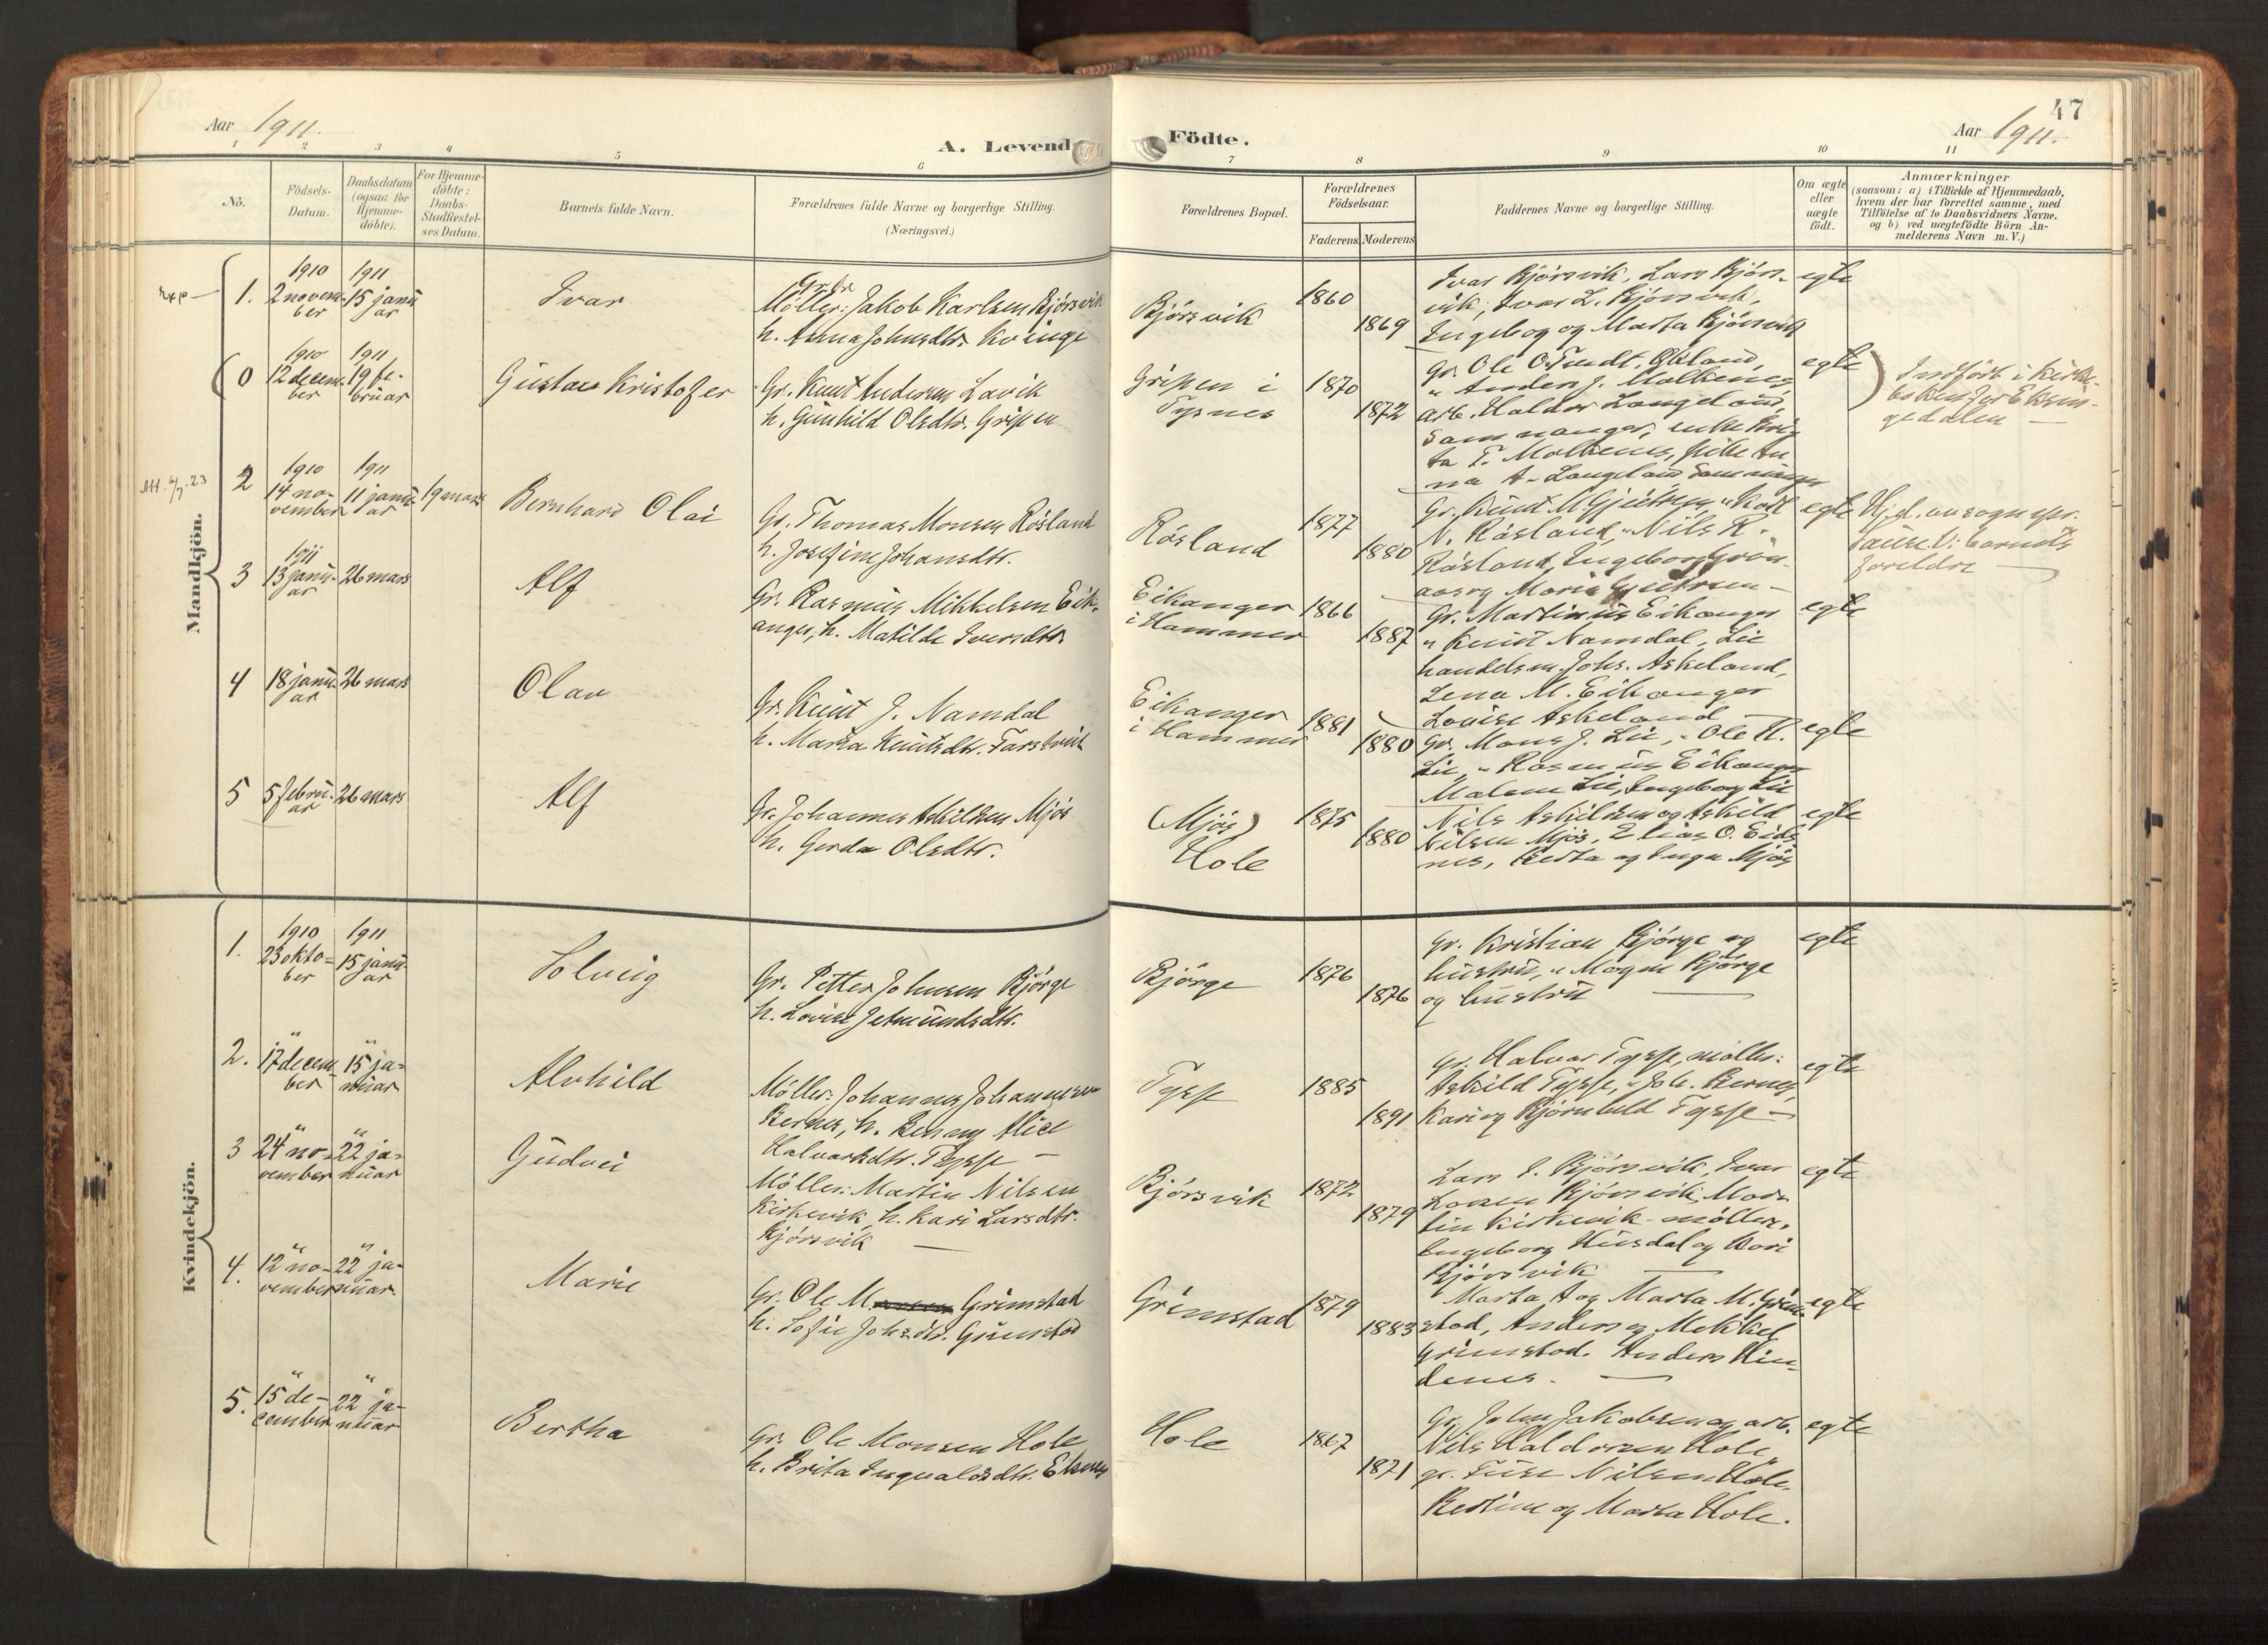 Aar 1911.
A. Levende Födte.
47
Aar 1911.
1 2 3 4 5 6 7 8 9 10 11
Nö.
Födsels-
Datum.
Daabsdatum
(ogsaa for
Hjemme-
döbte).
For Hjemme-
döbte:
Daabs-
Stadfæstel-
ses Datum.
Barnets fulde Navn.
Forældrenes fulde Navne og borgerlige Stilling.
(Næringsvei.)
Forældrenes Bopæl.
Forældrenes
Födselsaar.
Faderens. Moderens.
Faddernes Navne og borgerlige Stilling.
Om ægte
eller
uægte
födt.
Anmærkninger
(saasom: a) i Tilfælde af Hjemmedaab,
hvem der har forrettet samme, med
Tilföielse af to Daabsvidners Navne,
og b) ved uægtefödte Börn An-
melderens Navn m. V.)
Mandkjön.
1.
1910
2 novem-
ber
1911
15 janu-
ar
Ivar
Möller: Jakob Karlsen Bjørsvik
h. Anna Johnsdtr. Kvinge
Bjørsvik
1860
1869
Ivar Bjørsvik, Lars Bjørs-
vik, Ivar L. Bjørsvik,
Ingeborg og Marta Bjørsvik
egte
0
1910
12 decem-
ber
1911
19 fe-
bruar
Gustav Kristofer
Gr. Knut Andersen Lavik
h. Gunhild Olsdtr. Gripen
Gripen i
Tysnes
1870
1872
Gr. Ole O. Økland,
" Anders J. Molkenes
arb. Haldor Langeland,
Samnanger, enke Bri-
ta T. Molkenes, pike An-
na A. Langeland Samnanger
egte
Indført i kirke-
boken for Eksin-
gedalen —
2
1910
14 no-
vember
1911
11 janu-
ar
19 mars
Bernhard Olai
Gr. Thomas Monsen Røsland
h. Josefine Johansdtr.
Røsland
1877
1880
Gr. Knut M. Gjeitrem, " Karl
N. Røsland, " Nils R.
Røsland, Ingeborg
og Marie Gjeitrem —
egte
Hj.d. av sognepr.
barnets
foreldre —
3
1911
13 janu-
ar
26 mars
Alf
Gr. Rasmus Mikkelsen Eik-
anger, h. Matilde Iversdtr.
Eikanger
i Hammer
1866
1887
Gr. Martinus Eikanger
" Knut Namdal, Lie
handelsm. Johs. Askeland,
Lena M. Eikanger
Louise Askeland
egte
4
18 janu-
ar
26 mars
Olav
Gr. Knut J. Namdal
h. Marta Knutsdtr. Farstveit
Eikanger
i Hammer
1881
1880
Gr. Mons J. Lie, " Ole K.
Lie, " Rasmus Eikanger
Malene Lie, Ingeborg Lie
egte
5
5 febru-
ar
26 mars
Alf
Gr. Johannes Askildsen Mjøs
h. Gerda Olsdtr.
(Mjøs)
Hole
1875
1880
Nils Askildsen og Askild
Nilsen Mjøs, Elias O. Eids-
nes, Berta og Inga Mjøs
egte
Kvindekjön.
1.
1910
23 okto-
ber
1911
15 janu-
ar
Solveig
Gr. Petter Johnsen Bjørge
h. Lovise Jetmundsdtr.
Bjørge
1876
1876
Gr. Kristian Bjørge og
hustru, " Mogin Bjørge
og hustru —
egte
2.
17 decem-
ber
" 15 ja-
nuar
Alvhild
Möller: Johannes Johannessen
Bernes, h. Benny Alice
Halvorsdtr. Tysse —
Tysse
1885
1891
Gr. Halvor Tysse, møller:
Askild Tysse, " Joh. Bernes,
Kari og Bjørnhild Tysse —
egte
3
" 24 no-
vember
" 22 ja-
nuar
Gudvei
Möller: Martin Nilsen
Kirkevik, h. Kari Larsdtr.
Bjørsvik —
Bjørsvik
1872
1879
Lars I. Bjørsvik, Ivar
Larsen Bjørsvik, Mar-
tin Kirkevik - møller,
Ingeborg Husdal og Kari
Bjørsvik —
egte
4.
" 12 no-
vember
" 22 ja-
nuar
Marie
Gr. Ole M. Grimstad
h. Sofie Johsdtr. Grimstad
Grimstad
1879
1883
Marta A og Marta M. Grim-
stad, Anders og Mekkel
Grimstad. Anders Hin-
denes. —
egte
5.
" 15 de-
cember
" 22 ja-
nuar
Bertha
Gr. Ole Monsen Hole
h. Brita Ingvaldsdtr. Eknes
Hole
1867
1871
Gr. John Jakobsen og arb.
Nils Haldorsen Hole,
gr. Nilsen Hole.
Bertine og Marta Hole.
egte